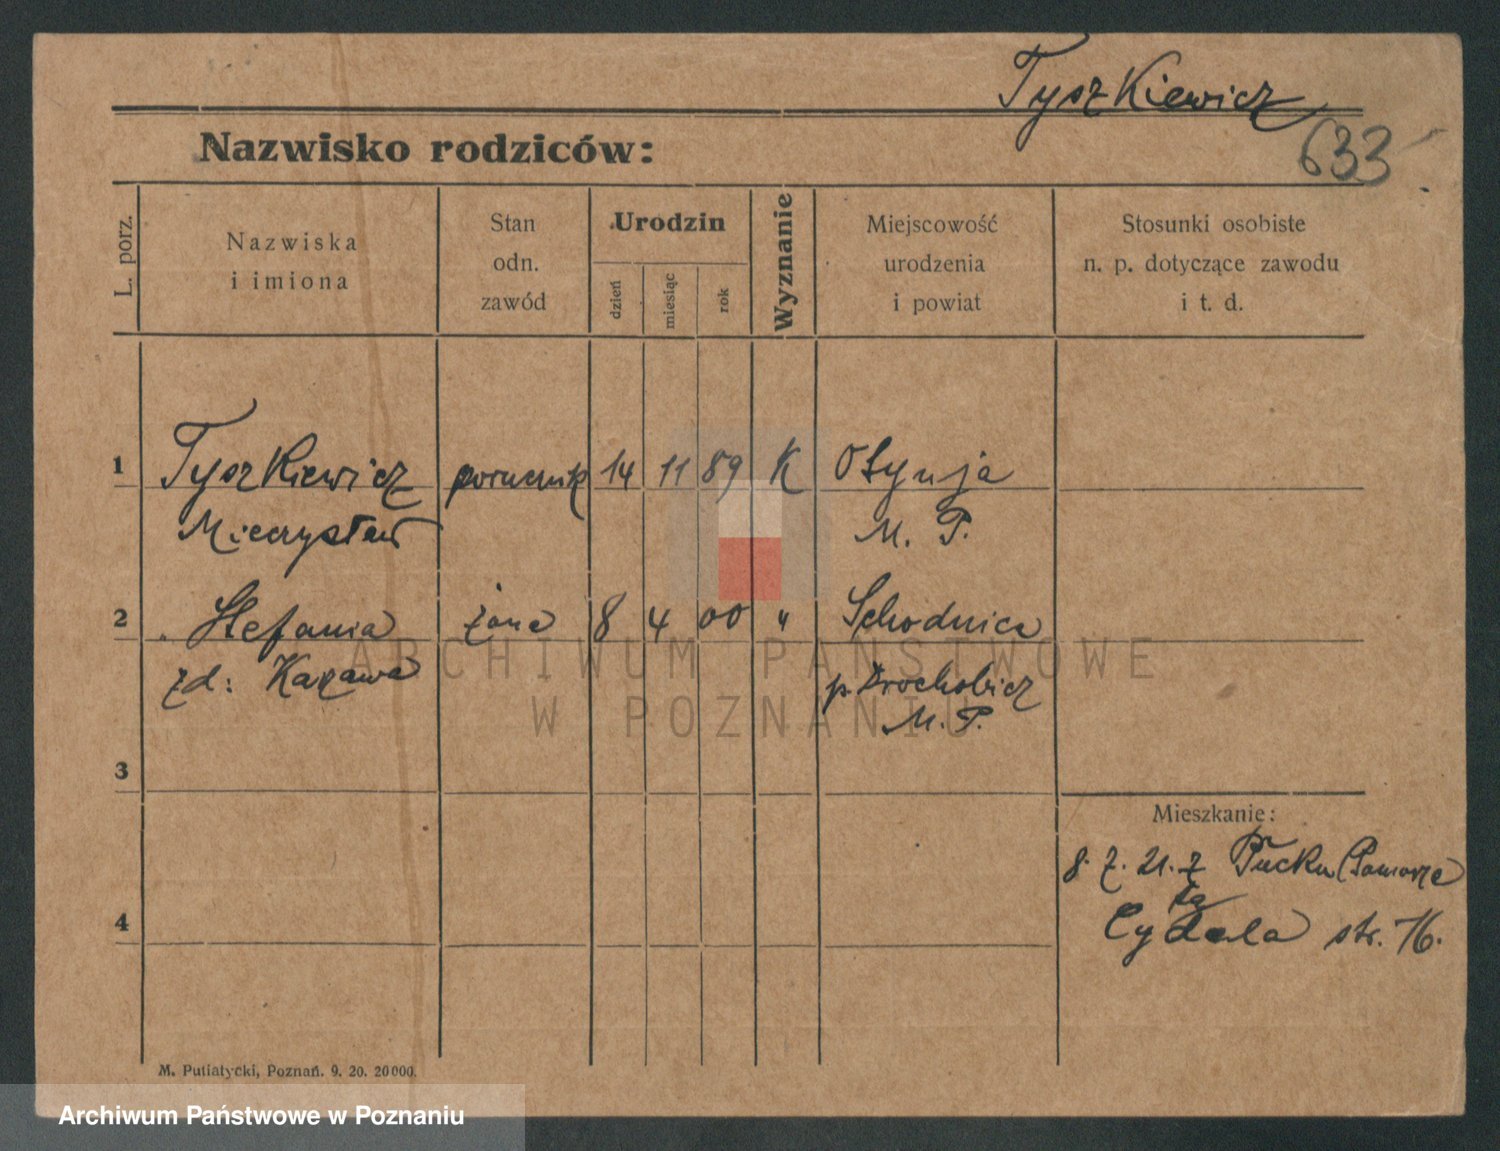 Tyszkiewicz
633
Nazwisko rodziców:
L. porz.
Nazwiska
i imiona
Stan
odn.
zawód
Urodzin
dzień
miesiąc
rok
Wyznanie
Miejscowość
urodzenia
i powiat
Stosunki osobiste
n. p. dotyczące zawodu
i t. d.
1 Tyszkiewicz porucznik 14 11 89 K Otynja
Mieczysław M. P.
2 Stefania żona 8 4 00 " Schodnica
zd: p. Drohobicz
M. P.
3
Mieszkanie:
8. 7. 21. z Pucku (Pomorze
4
Cytadela str. 76.
ARCHIWUM PAŃSTWOWE
W POZNANIU
M. Putiatycki, Poznań. 9. 20. 20000.
Archiwum Państwowe w Poznaniu